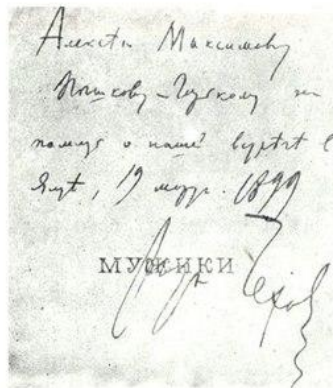 Алексѣю Максимовичу
Пѣшкову-Горькому на
память о нашей встрѣчѣ въ
Ялтѣ, 19 мартъ. 1899
МУЖИКИ
Антонъ Чехов